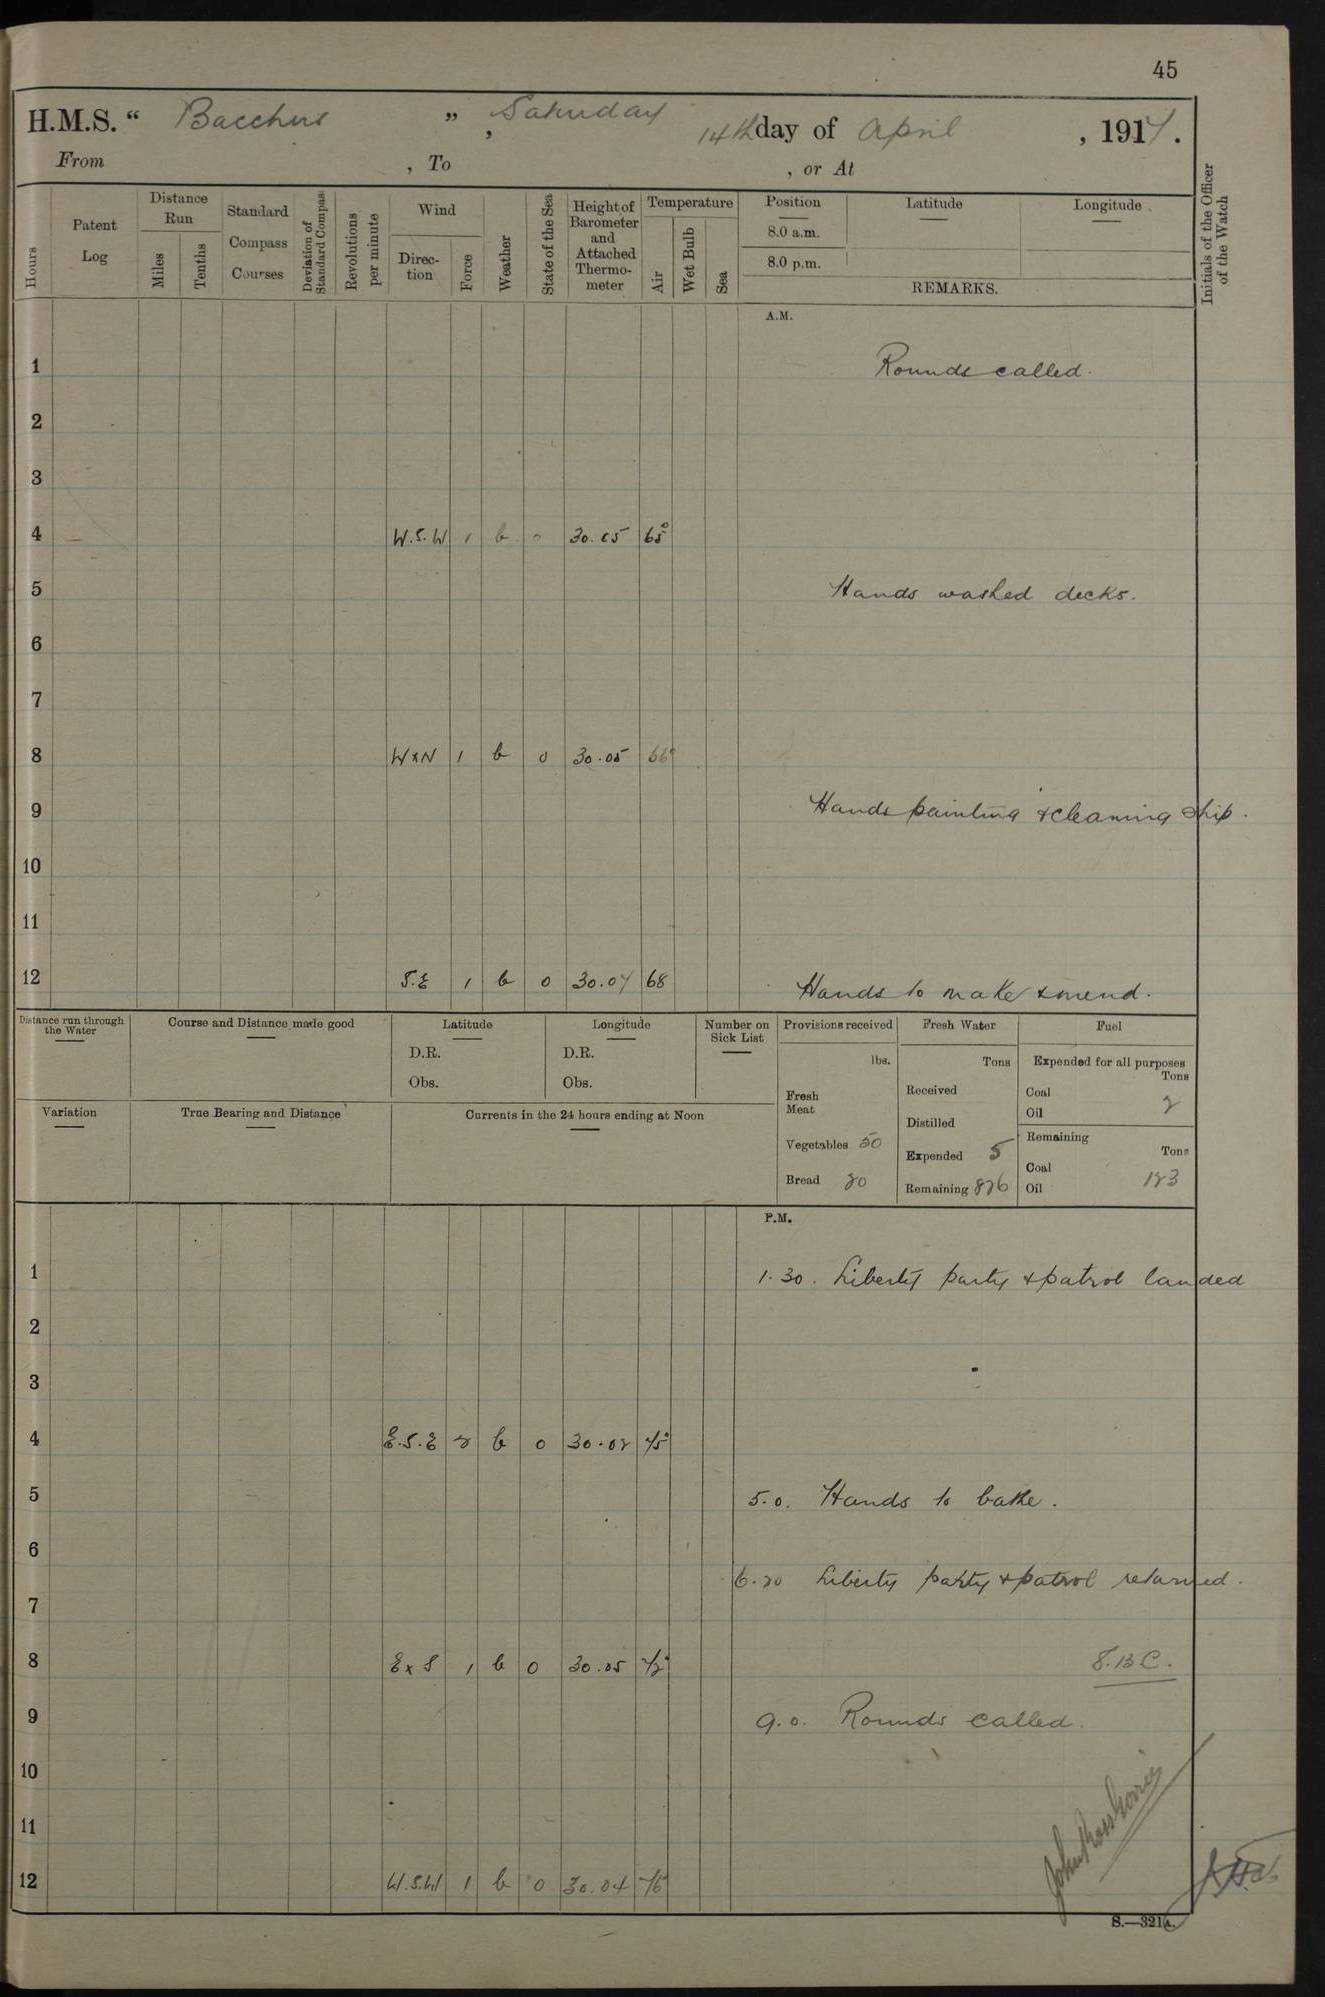 45
H.M.S. “ Bacchus ”, Saturday 14th day of April, 1917.
From , To , or At
Hours
Patent Log
Distance Run
Miles
Tenths
Standard Compass Courses
Deviation of Standard Compass
Revolutions per minute
Wind
Direction
Force
Weather
State of the Sea
Height of Barometer and Attached Thermometer
Temperature
Air
Wet Bulb
Sea
Position
8.0 a.m.
8.0 p.m.
Latitude
Longitude
REMARKS.
Initials of the Officer of the Watch
A.M.
1 Rounds called.
2
3
4 W.S.W 1 b 0 30.05 65°
5 Hands washed decks.
6
7
8 WxN 1 b 0 30.05 66°
9 Hands painting & cleaning ship.
10
11
12 S.E 1 b 0 30.04 68 Hands to make & mend.
Distance run through the Water
Course and Distance made good
Latitude
D.R.
Obs.
Longitude
D.R.
Obs.
Number on Sick List
Variation
True Bearing and Distance
Currents in the 24 hours ending at Noon
Provisions received
lbs.
Fresh Meat
Vegetables 50
Bread 20
Fresh Water
Tons
Received
Distilled
Expended 5
Remaining 826
Fuel
Expended for all purposes
Tons
Coal
Oil 2
Remaining
Tons
Coal
Oil 123
P.M.
1 1.30. Liberty party & patrol landed
2
3
4 E.S.E 2 b 0 30.02 75°
5 5.0. Hands to bathe.
6
6.20 Liberty party & patrol returned.
7
8 ExS 1 b 0 30.05 72° 
9 9.0. Rounds called.
10
11
12 W.S.W 1 b 0 30.04 76
S.—321A.